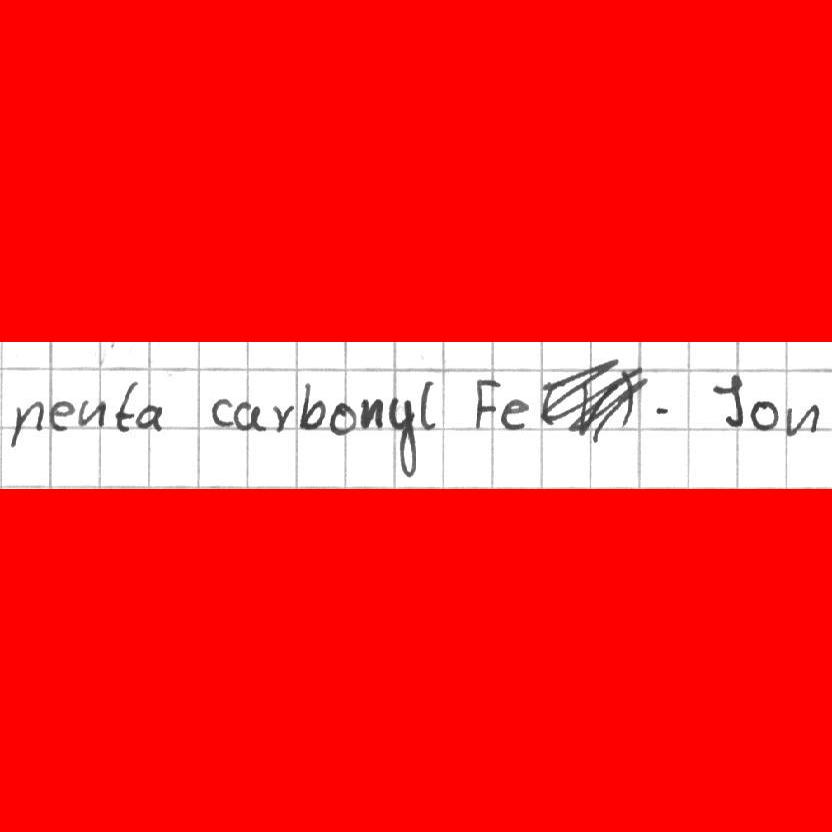 penta carbonyl Fe - Jon